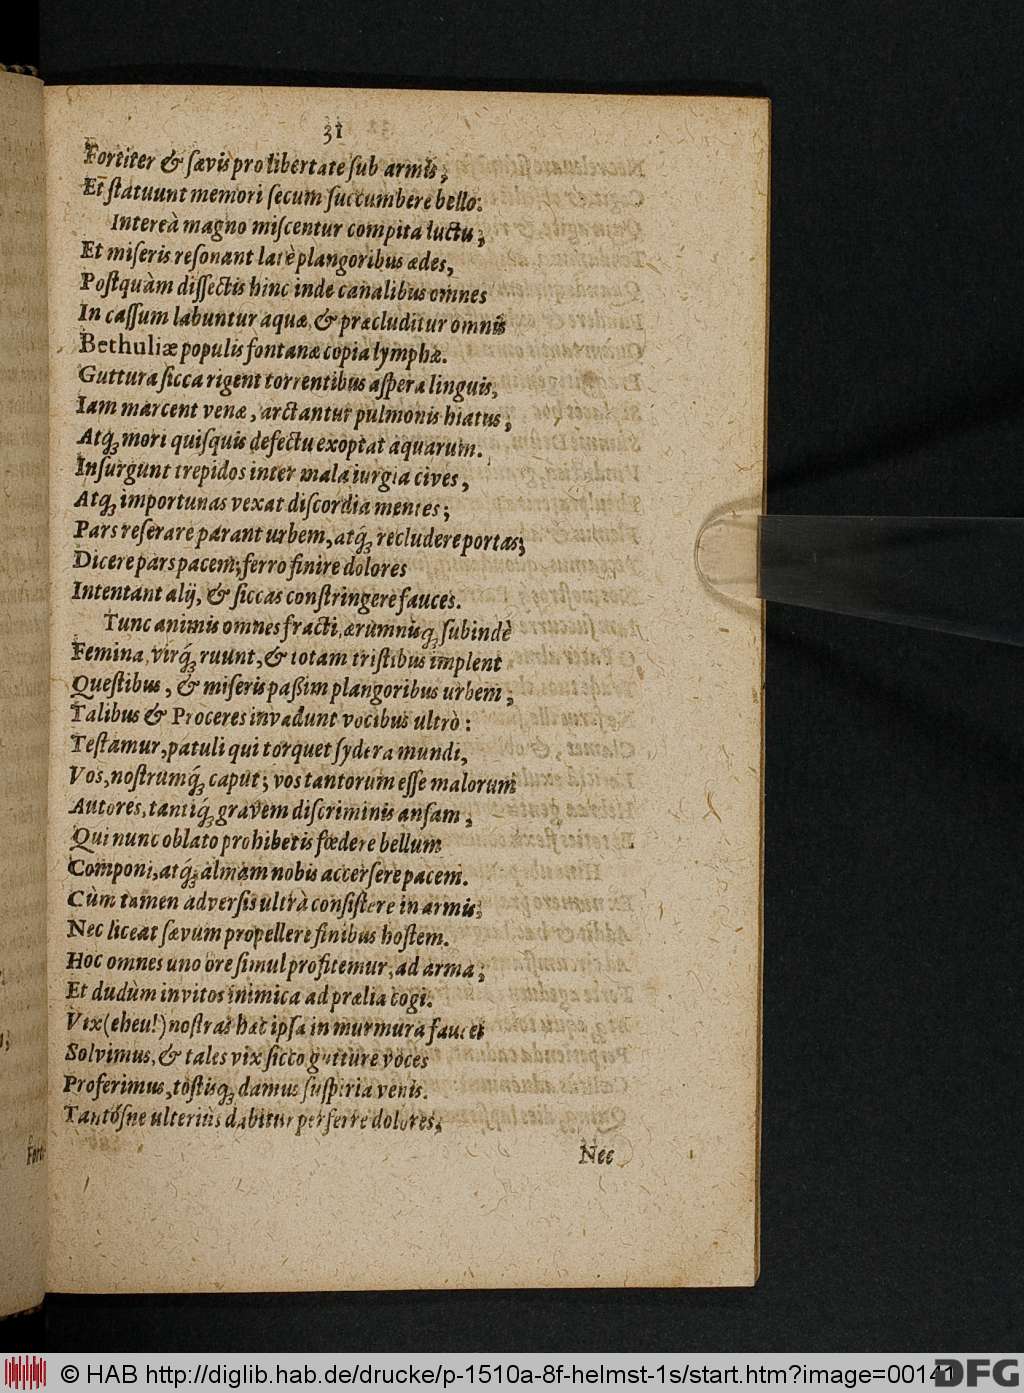 31
Fortiter & sævis pro libertate sub armis;
Et statuunt memori secum succumbere bello.
Intereà magno miscentur compita luctu;
Et miseris resonant latè plangoribus ædes,
Postquàm dissectis hinc inde canalibus omnes
In cassum labuntur aquæ, & præcluditur omnis
Bethuliæ populis fontanæ copia lymphæ.
Guttura sicca rigent torrentibus aspera linguis,
Iam marcent venæ, arctantur pulmonis hiatus;
Atq́ꝫ mori quisquis defectu exoptat aquarum.
Insurgunt trepidos inter mala iurgia cives,
Atqꝫ importunas vexat discordia mentes;
Pars reserare parant urbem, atq́ꝫ recludere portas;
Dicere pars pacem; ferro finire dolores
Intentant alij, & siccas constringere fauces.
Tunc animis omnes fracti, ærumnisqꝫ subindè
Femina, virq́ꝫ ruunt, & totam tristibus implent
Questibus, & miseris paßim plangoribus urbem;
Talibus & Proceres invadunt vocibus ultrò:
Testamur, patuli qui torquet sydera mundi,
Vos, nostrumq́ꝫ caput; vos tantorum esse malorum
Autores, tantiq́ꝫ gravem discriminis ansam,
Qui nunc oblato prohibetis fœdere bellum
Componi, atq́ꝫ almam nobis accersere pacem.
Cùm tamen adversis ultrà consistere in armis;
Nec liceat sævum propellere finibus hostem.
Hoc omnes uno ore simul profitemur, ad arma;
Et dudùm invitos inimica ad prælia cogi.
Vix (eheu!) nostras hæc ipsa in murmura fauces
Solvimus, & tales vix sicco gutture voces
Proferimus, tostisqꝫ damus suspiria venis.
Tantósne ulteriùs dabitur perferre dolores,
Nec
Fort
© HAB http://diglib.hab.de/drucke/p-1510a-8f-helmst-1s/start.htm?image=00141
DFG